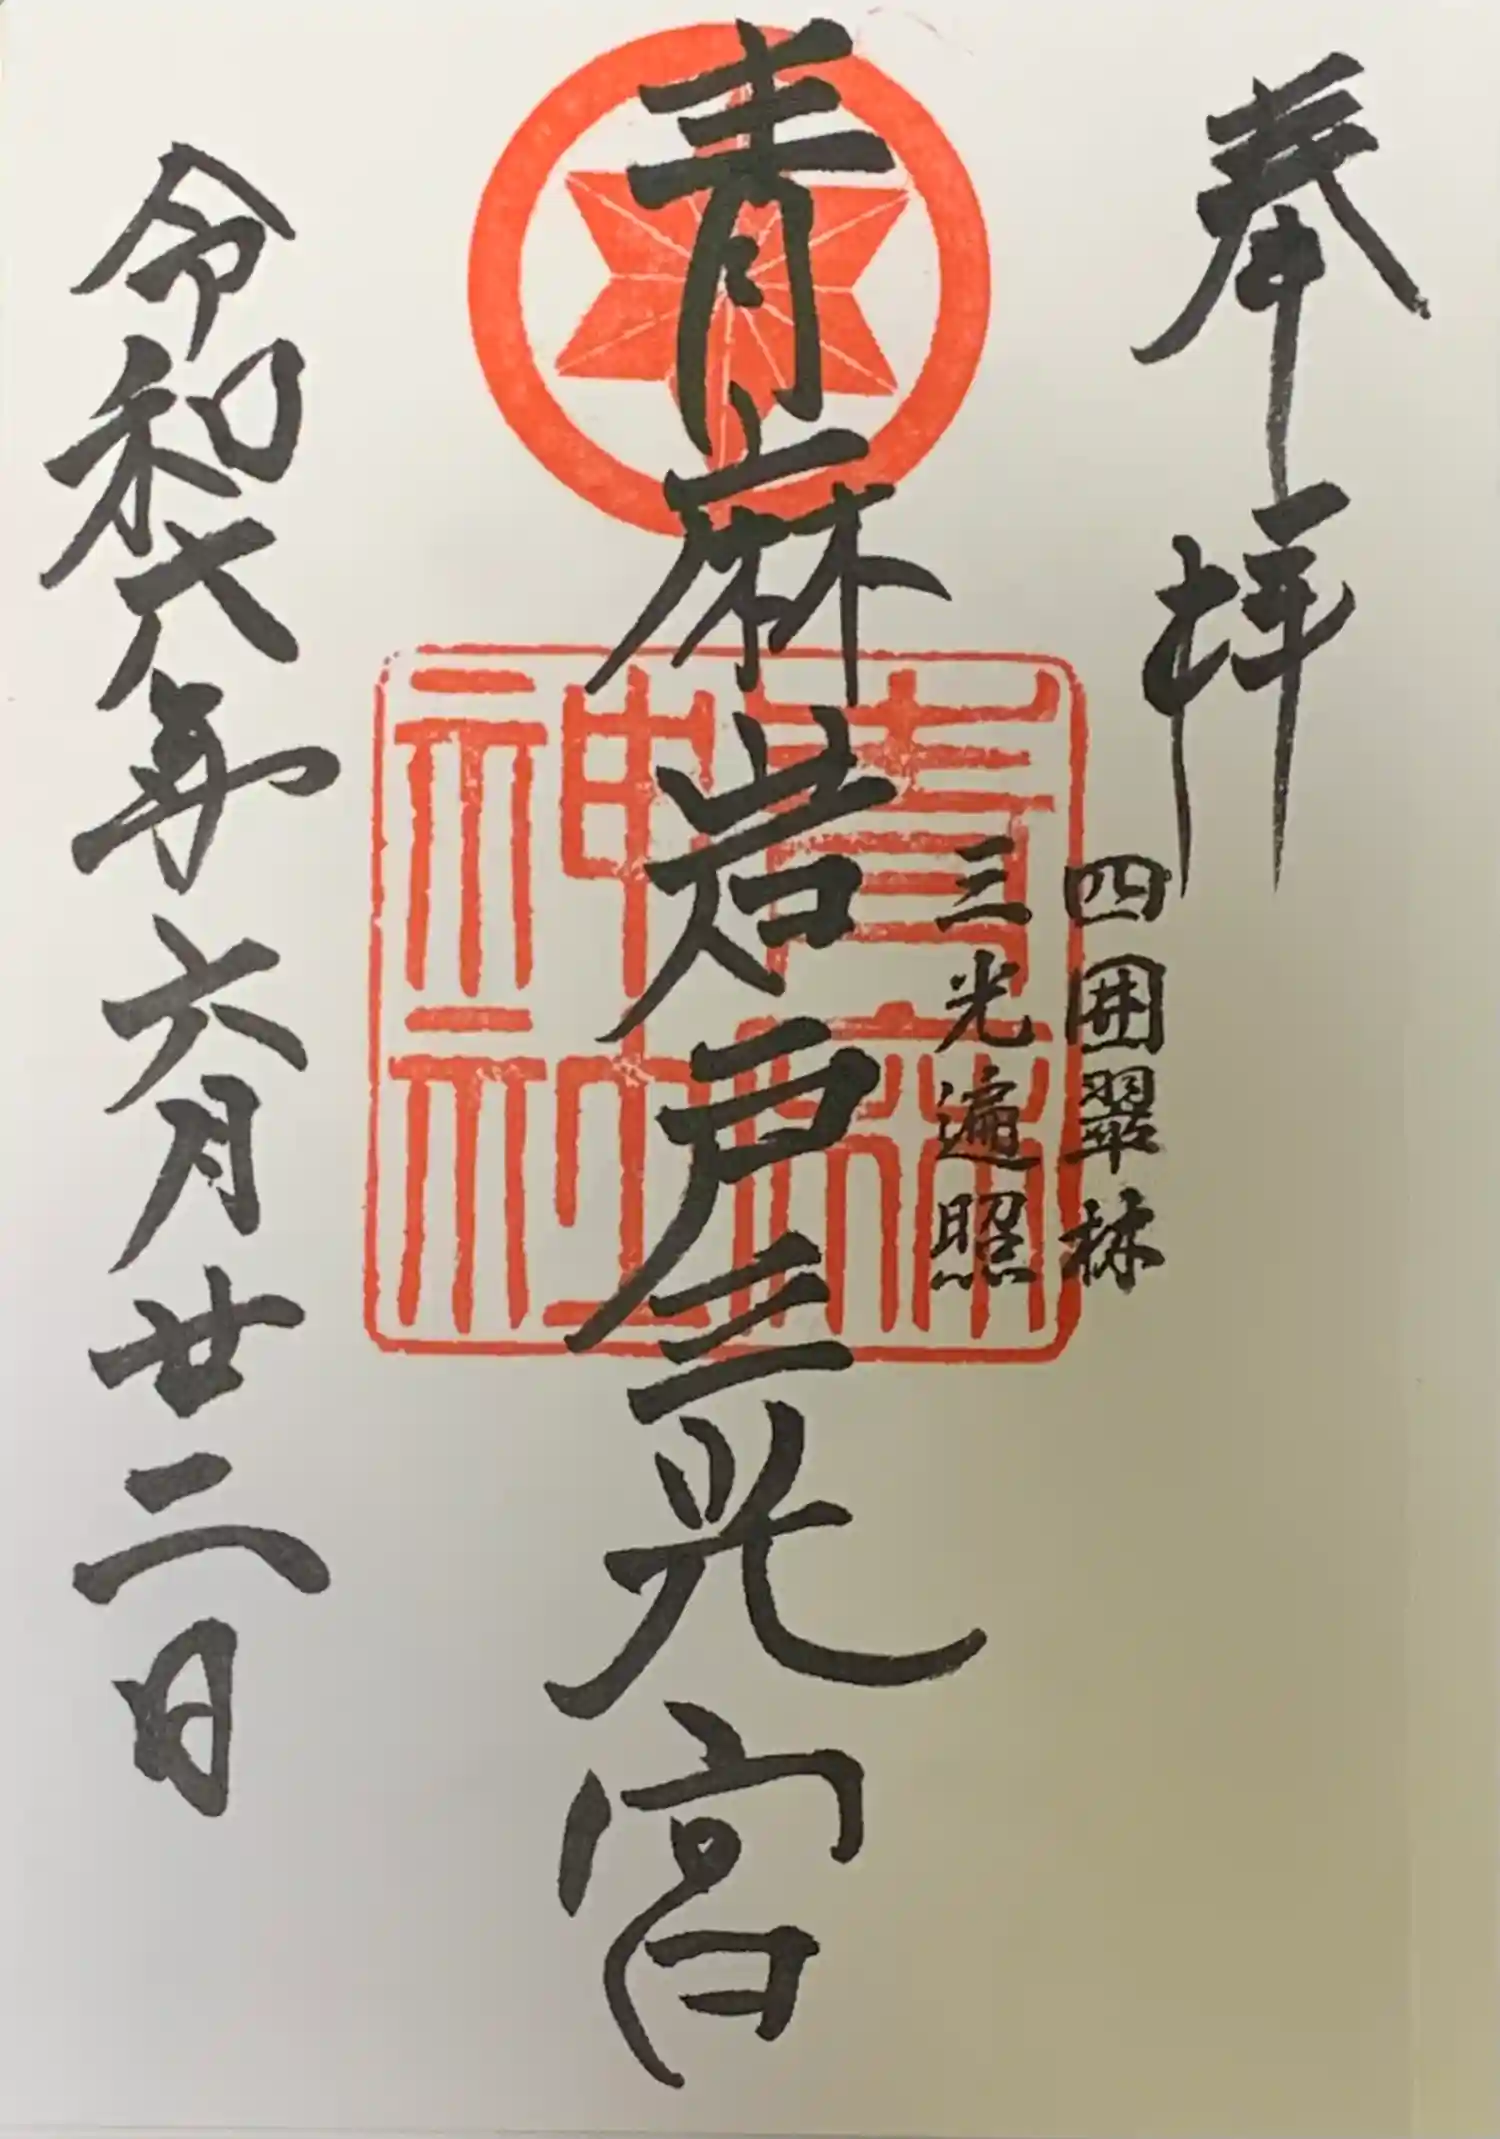 奉拝
四囲翠林
三光遍照
青麻岩戸三光宮
青麻
神社
令和六年六月廿二日